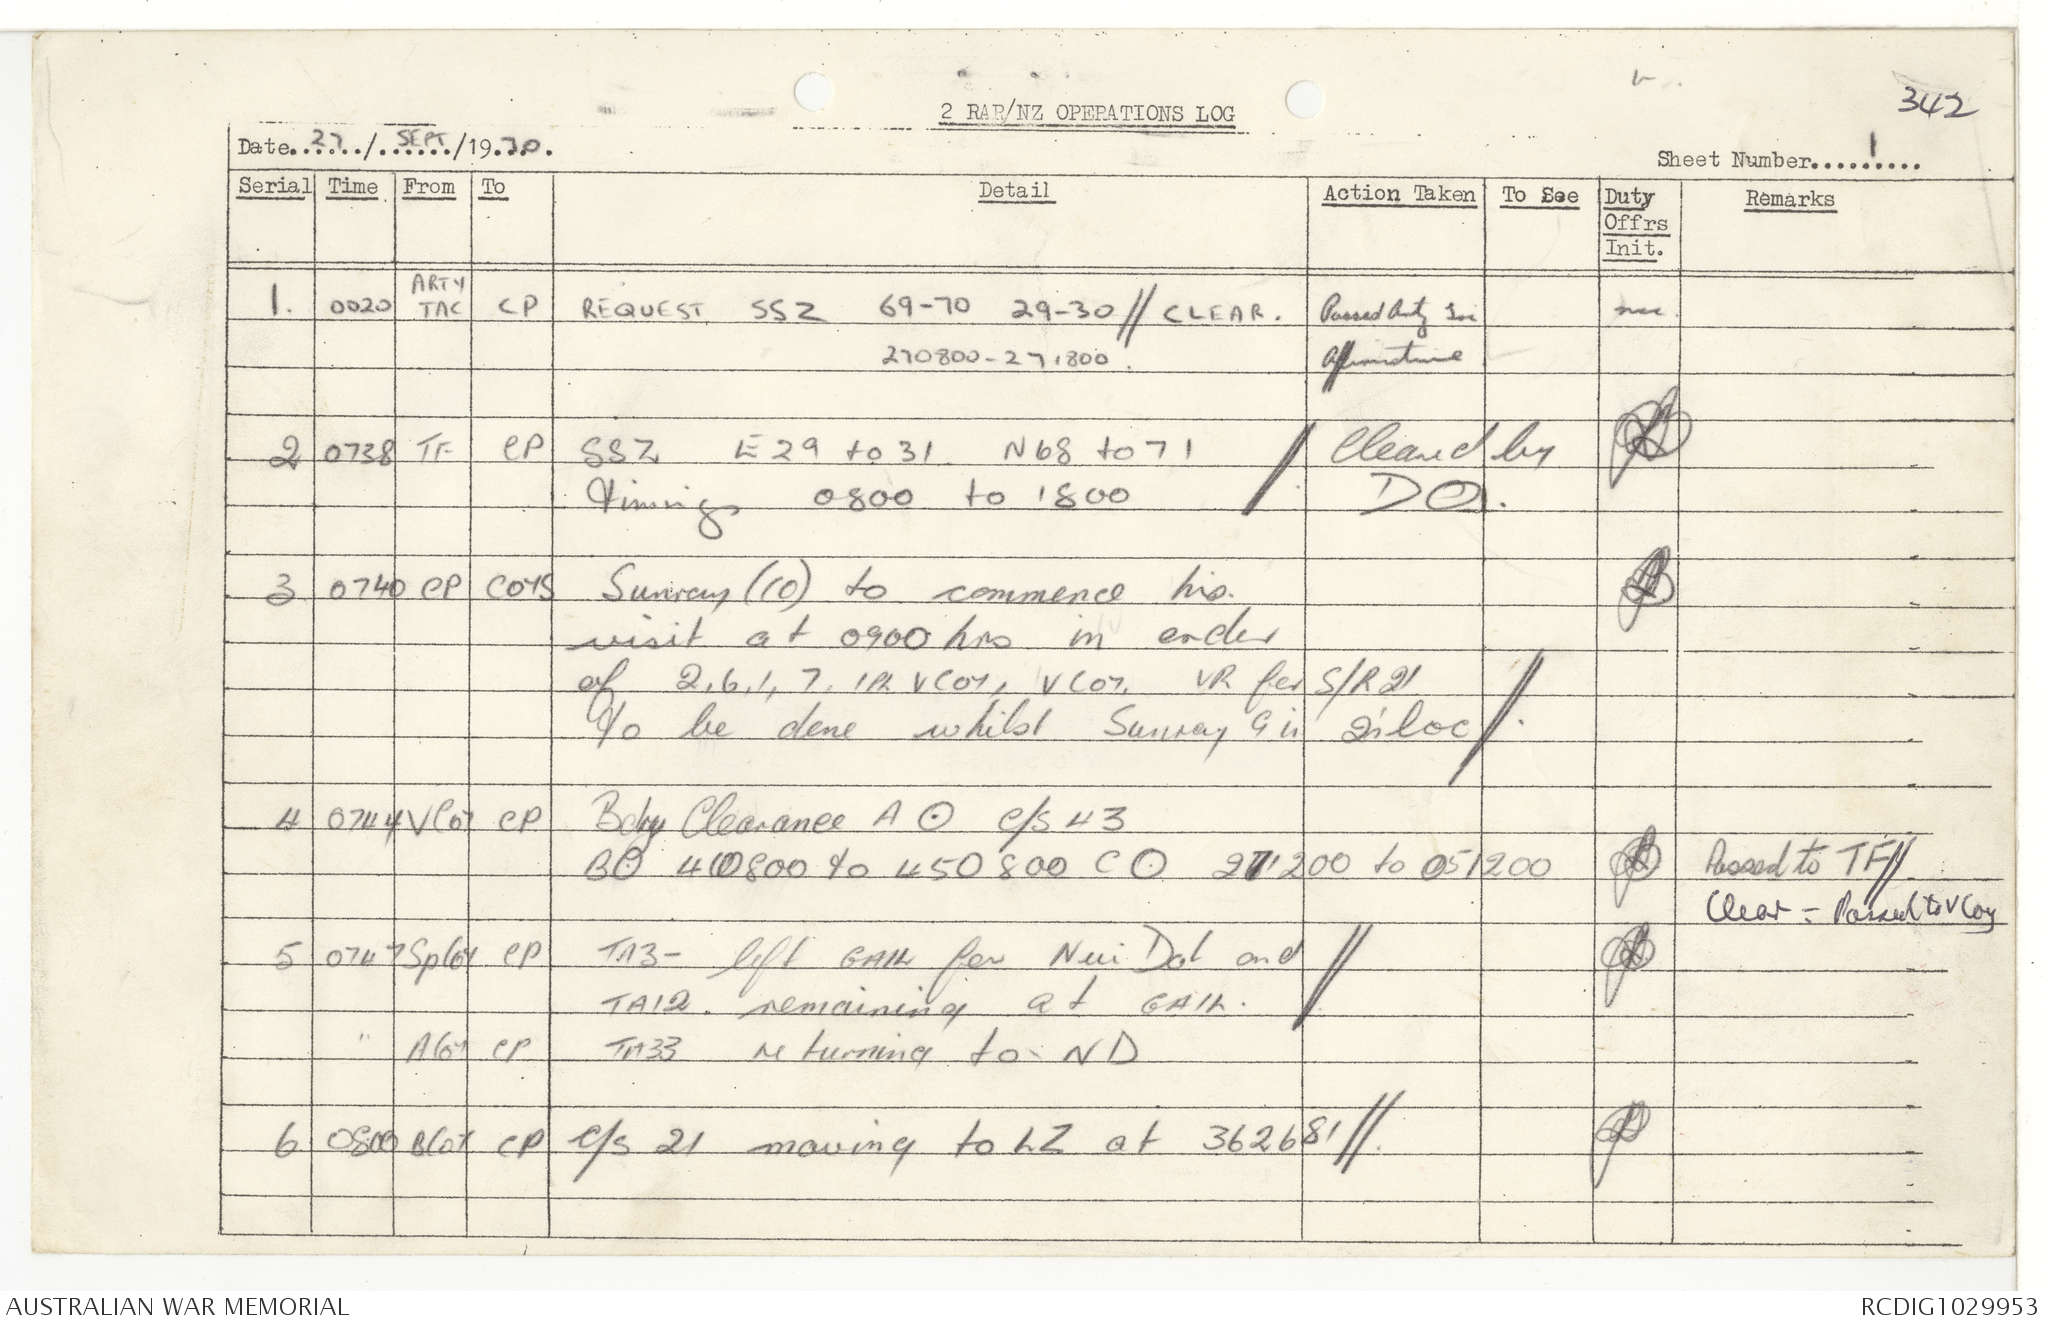 342
2 RAR/NZ OPERATIONS LOG
Date..27../.SEPT../19.70.
Sheet Number....1.....
Serial Time From To Detail Action Taken To See Duty Offrs Init. Remarks
1. 0020 ARTY TAC CP REQUEST SSZ 69-70 29-30 // CLEAR. Passed Arty
270800-271800. Affirmative
2 0738 TF CP SSZ E 29 to 31 N 68 to 71 / Cleared by
timings 0800 to 1800 DO.
3 0740 CP COYS Sunray (CO) to commence his
visit at 0900 hrs in order
of 2, 6, 1, 7, VCoy, VCoy. VR for S/R 21
to be done whilst Sunray 9 in 2's loc //.
4 0744 VCoy CP Bdry Clearance A O C/S 43
BO 410800 to 450800 CO 271200 to 051200 Passed to TF//
Clear = Passed to V Coy
5 0747 SpCoy CP TA3- left GAIL for Nui Dat and //
TA12. remaining at GAIL.
" ACoy CP TA33 returning to ND
6 0800 BCoy CP C/S 21 moving to LZ at 362681 //.
AUSTRALIAN WAR MEMORIAL
RCDIG1029953